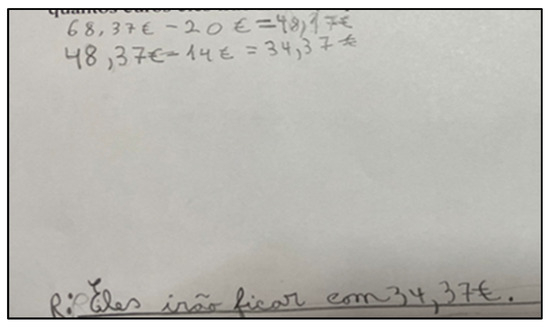 quantos euros eles
68,37€ - 20€ = 48,17€
48,37€ - 14€ = 34,37€
R: Eles irão ficar com 34,37€.